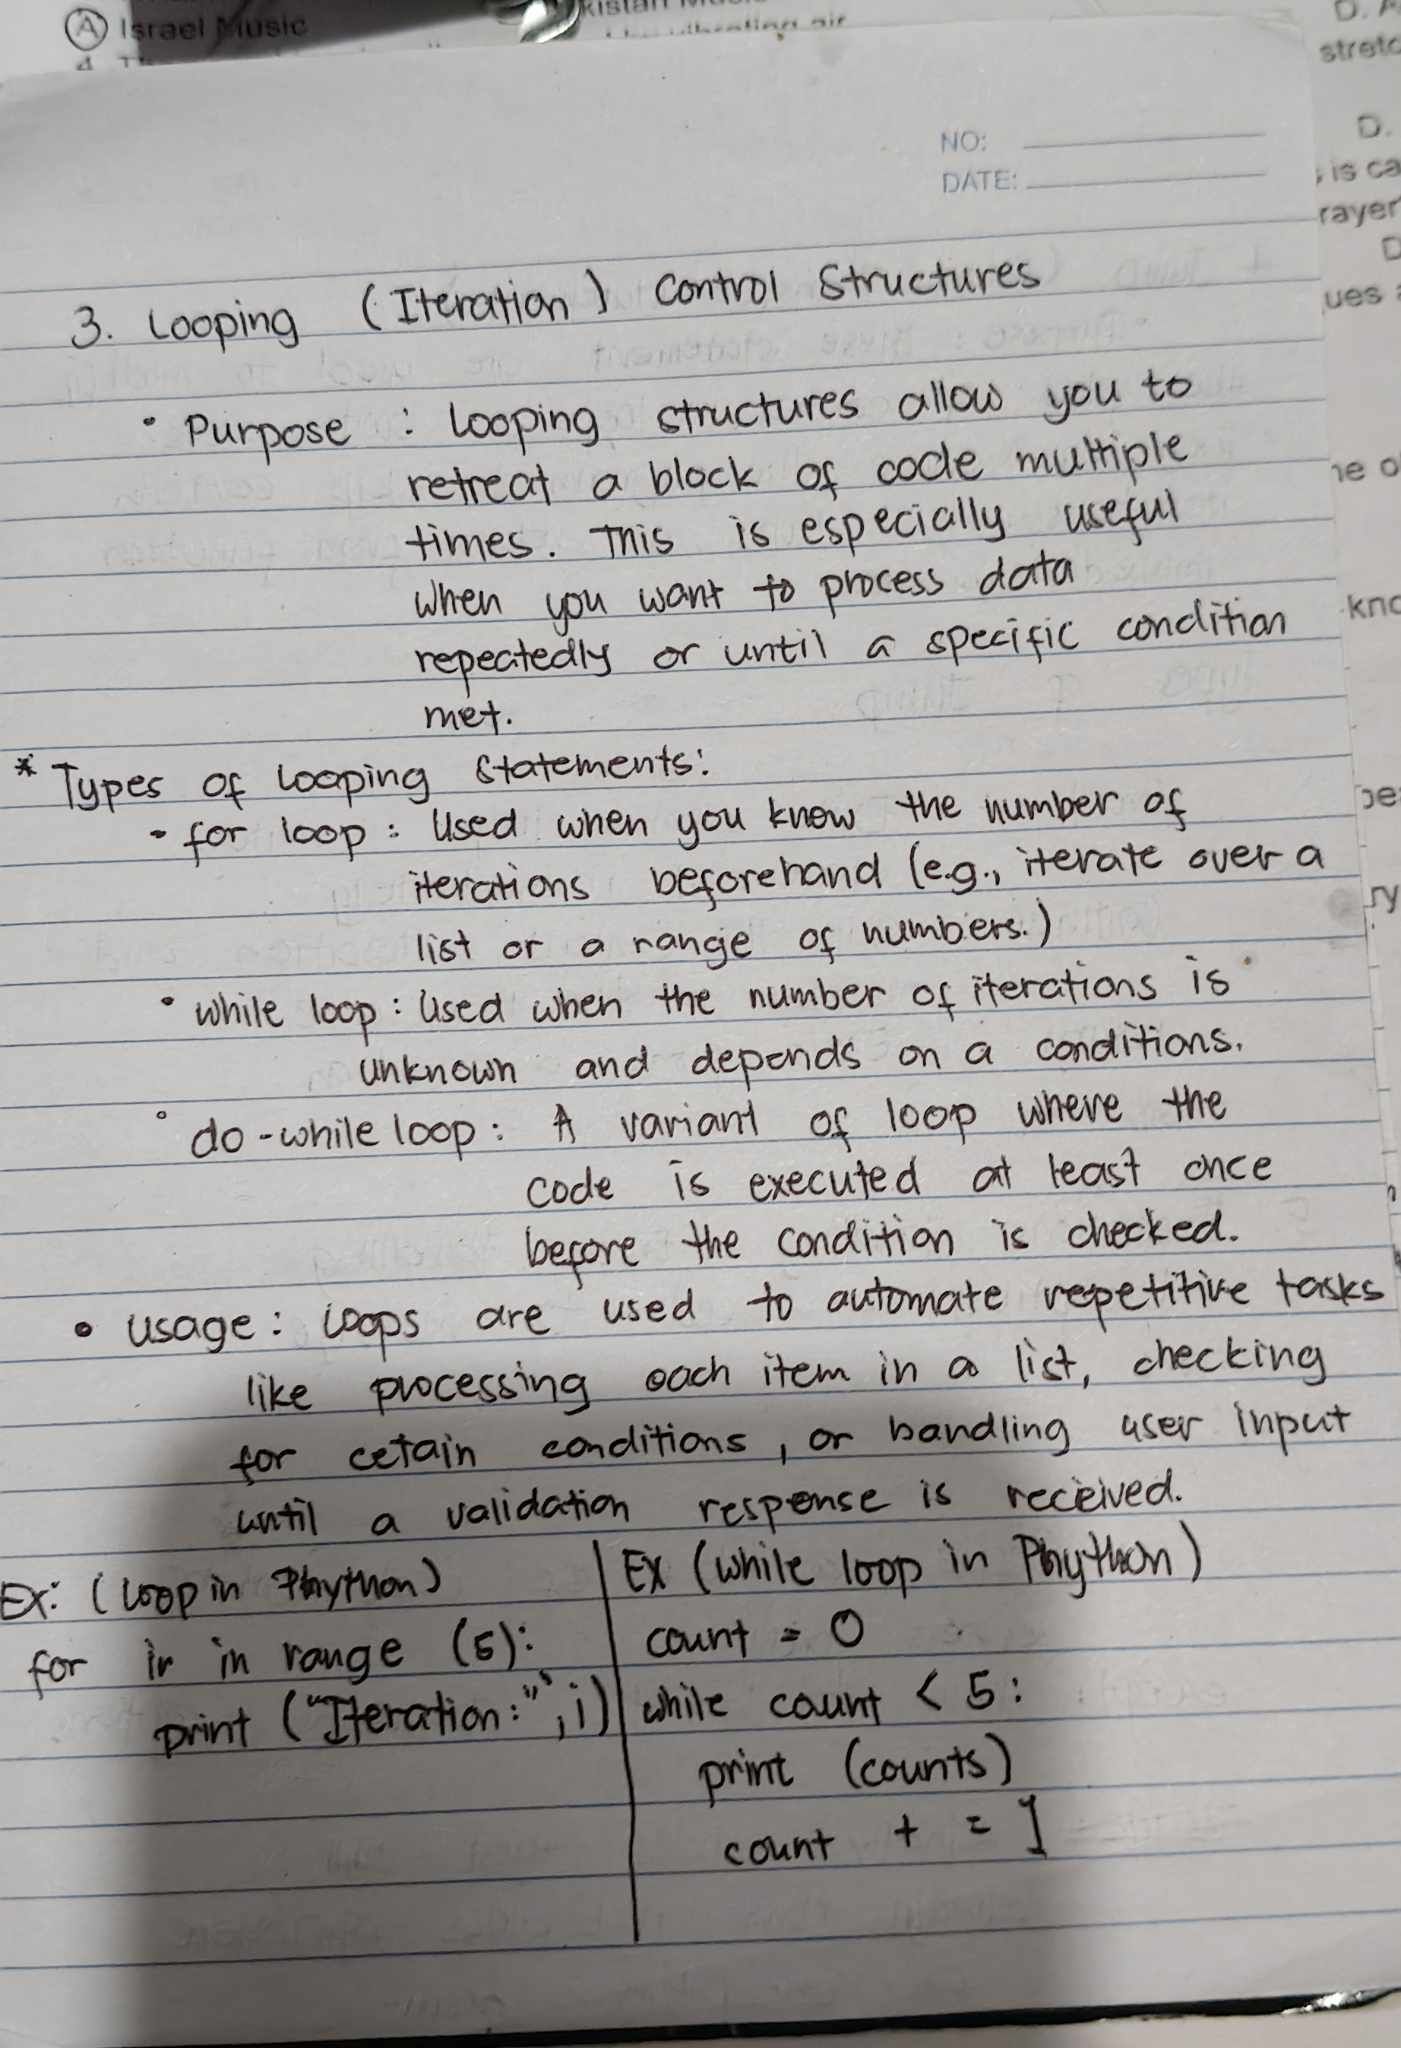 A Israel Music
NO:
DATE:
3. Looping (Iteration) Control Structures
• Purpose : Looping structures allow you to
retreat a block of code multiple
times. This is especially useful
when you want to process data
repeatedly or until a specific condition
met.
* Types of Looping Statements:
- for loop : Used when you know the number of
iterations beforehand (e.g., iterate over a
list or a range of numbers.)
• while loop : Used when the number of iterations is
unknown and depends on a conditions.
• do-while loop : A variant of loop where the
code is executed at least once
before the condition is checked.
• usage : Loops are used to automate repetitive tasks
like processing each item in a list, checking
for cetain conditions, or handling user input
until a validation response is received.
Ex: (Loop in Phython)
for in in range (5):
print ("Iteration:", i)
Ex (while loop in Phython)
count = 0
while count < 5:
print (counts)
count + = 1